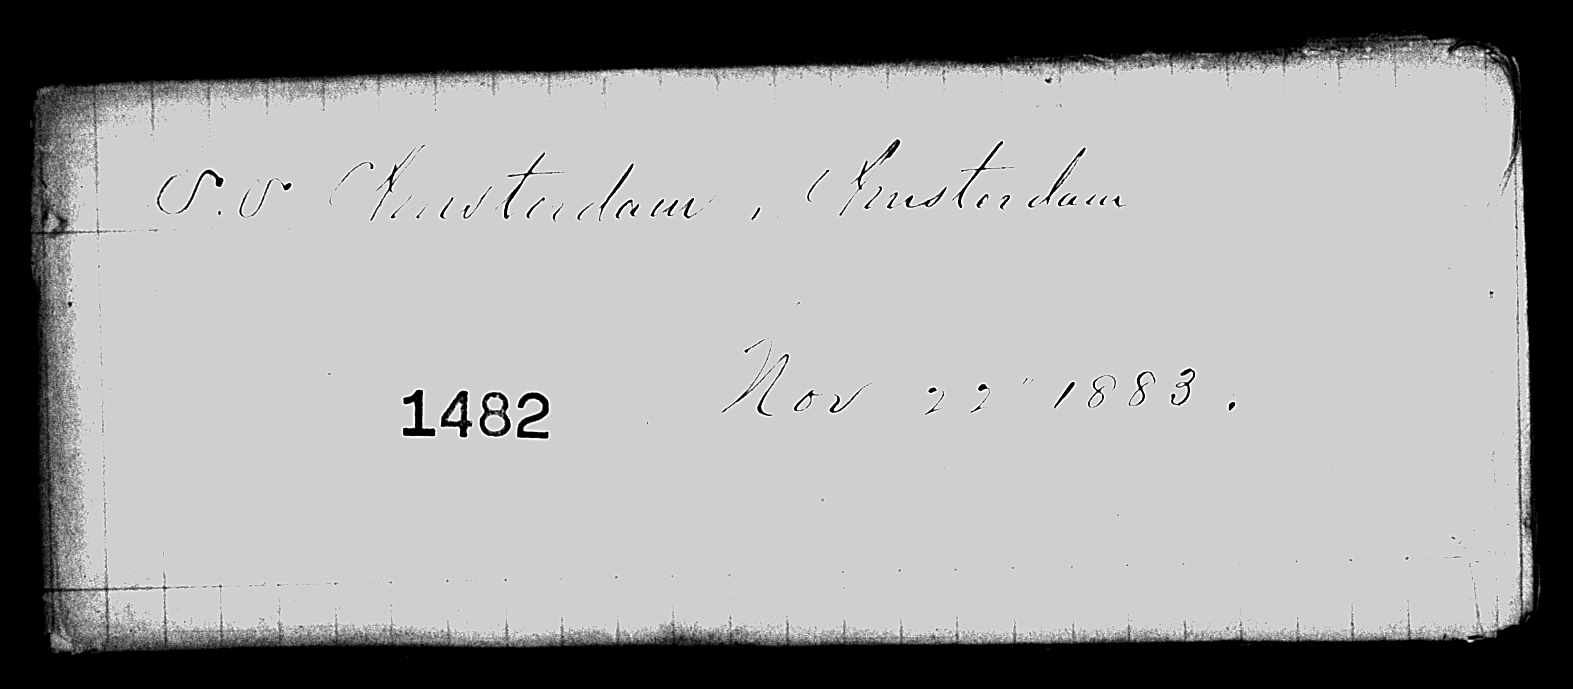 S.S Amsterdam, Amsterdam
Nov 22" 1883.
1482